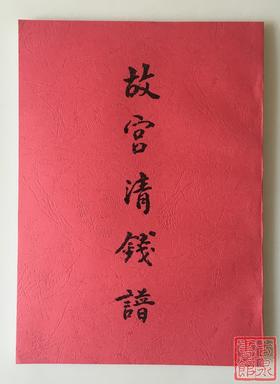 故宫清錢譜